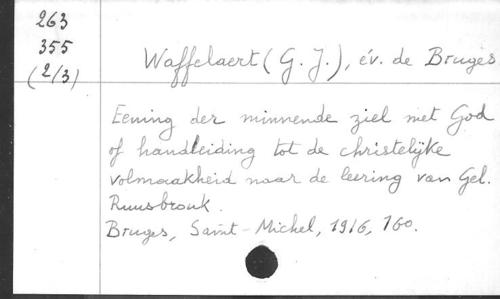 263
355
(2/3)
Waffelaert (G. J.), év. de Bruges
Eening der minnende ziel met God
of handleiding tot de christelijke
volmaakheid naar de leering van Gel.
Ruusbrouk.
Bruges, Saint-Michel, 1916, 160.